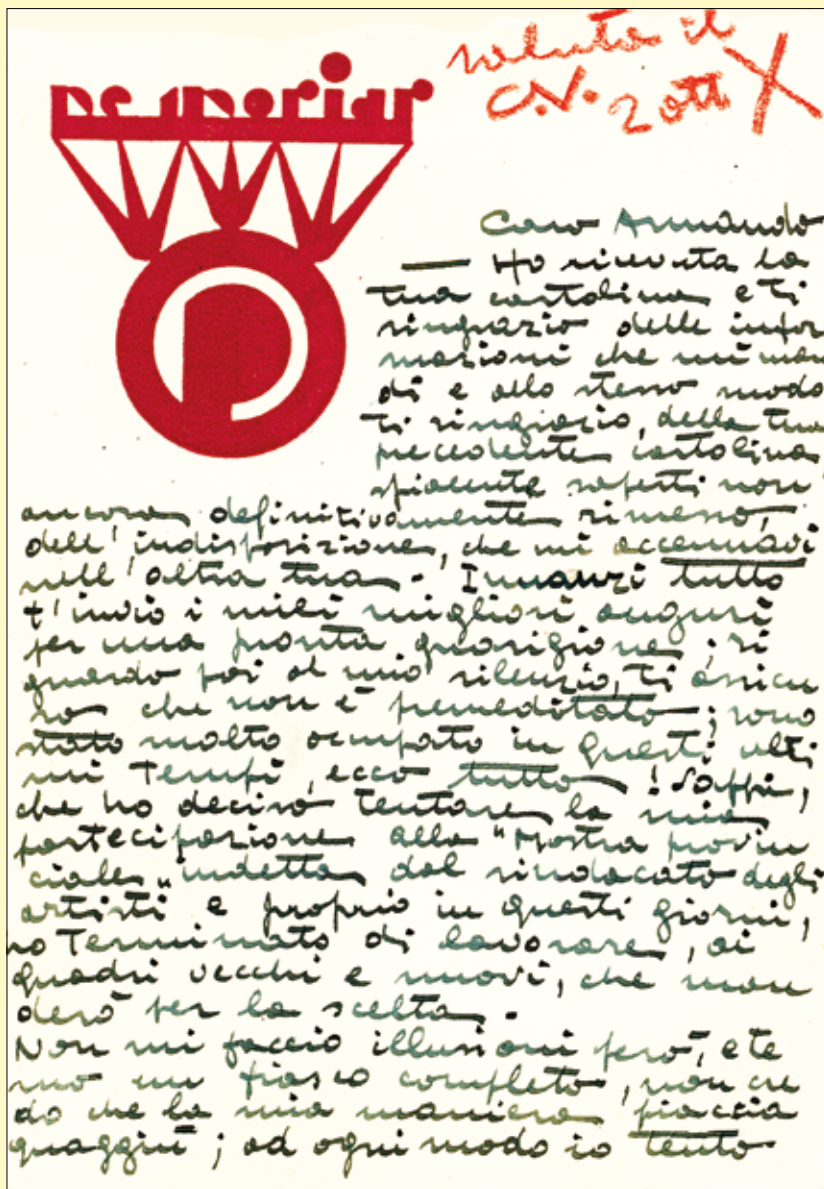 saluta il
C.V. 2 ott X
Caro Armando
— Ho ricevuta la
tua cartolina e ti
ringrazio delle infor
mazioni che mi man
di e allo stesso modo
ti ringrazio, della tua
precedente cartolina
spiacente saperti non
ancora definitivamente rimesso,
dell'indisposizione, che mi accennavi
nell'altra tua - Innanzi tutto
t'invio i miei migliori auguri
per una pronta guarigione; ri
guardo poi al mio silenzio, ti assicu
ro che non è premeditato; sono
stato molto occupato in questi ulti
mi Tempi, ecco tutto! Sappi,
che ho deciso tentare la mia
partecipazione alla "Mostra provin
ciale" indetta dal sindacato degli
artisti e proprio in questi giorni,
ho Terminato di lavorare, ai
quadri vecchi e nuovi, che man
derò per la scelta -
Non mi faccio illusioni però, e te
mo un fiasco completo, non cre
do che la mia maniera piaccia
quaggiù; ad ogni modo io tento